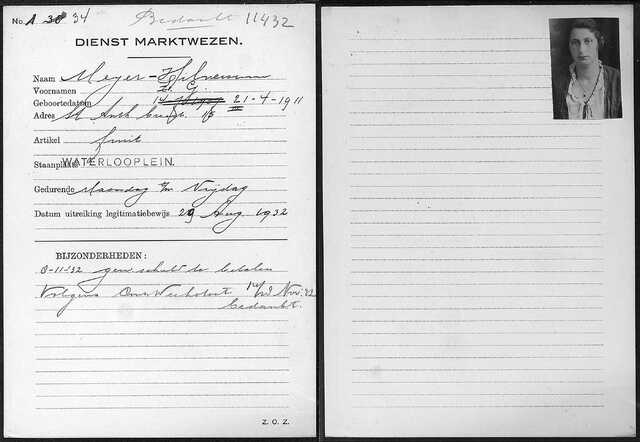 No. A 34 Bedankt 11432
DIENST MARKTWEZEN.
Naam Meyer-
Voornamen
Geboortedatum 21-4-1911
Adres St Anth
Artikel fruit
Staanplaats WATERLOOPLEIN.
Gedurende Maandag t/m Vrijdag
Datum uitreiking legitimatiebewijs 29 Aug. 1932
BIJZONDERHEDEN:
-11-'32 geen schuld te betalen
Volgens Nov. 32
bedankt.
Z. O. Z.